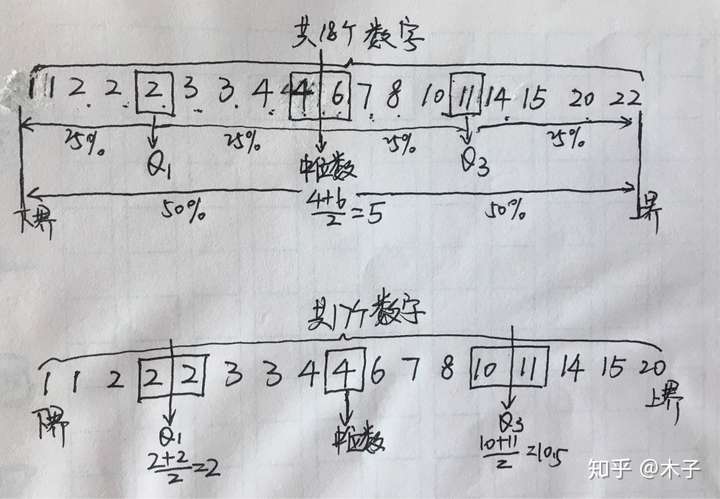 共18个数字
1 1 2 2 2 3 3 4 4 6 7 8 10 11 14 15 20 22
25% 25% 25% 25%
Q1 中位数 Q3
下界 50% 4+6/2=5 50% 上界
共17个数字
1 1 2 2 2 3 3 4 4 6 7 8 10 11 14 15 20
下界 Q1 中位数 Q3 上界
2+2/2=2 10+11/2=10.5
知乎 @木子